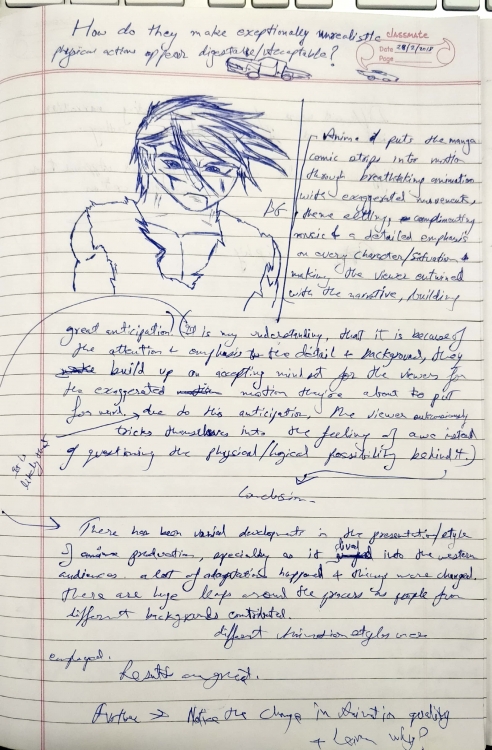 How do they make exceptionally unrealistic
physical action appear digestable/acceptable?
classmate
Date 28/2/2018
Page
Anime puts the manga
comic strips into motion
through breathtaking animation
with exaggerated movements,
theme setting, complimenting
music & a detailed emphasis
on every character/situation
making the viewer entwined
with the narrative, building
great anticipation. (It is my understanding, that it is because of
the attention & emphasis to the detail & background, they
build up an accepting mindset for the viewers for
the exaggerated motion they're about to put
forward, due to this anticipation, the viewer
tricks themselves into the feeling of awe instead
of questioning the physical/logical possibility behind it.)
likely that
Conclusion
There has been varied developments in the presentation/style
of anime production, specially as it into the western
audiences. a lot of adaptation happened & things were changed.
There are huge leaps around the process as people from
different backgrounds contributed.
different Animation styles were
employed.
Results are great.
Further → Notice the change in Animation quality
+ Learn why?